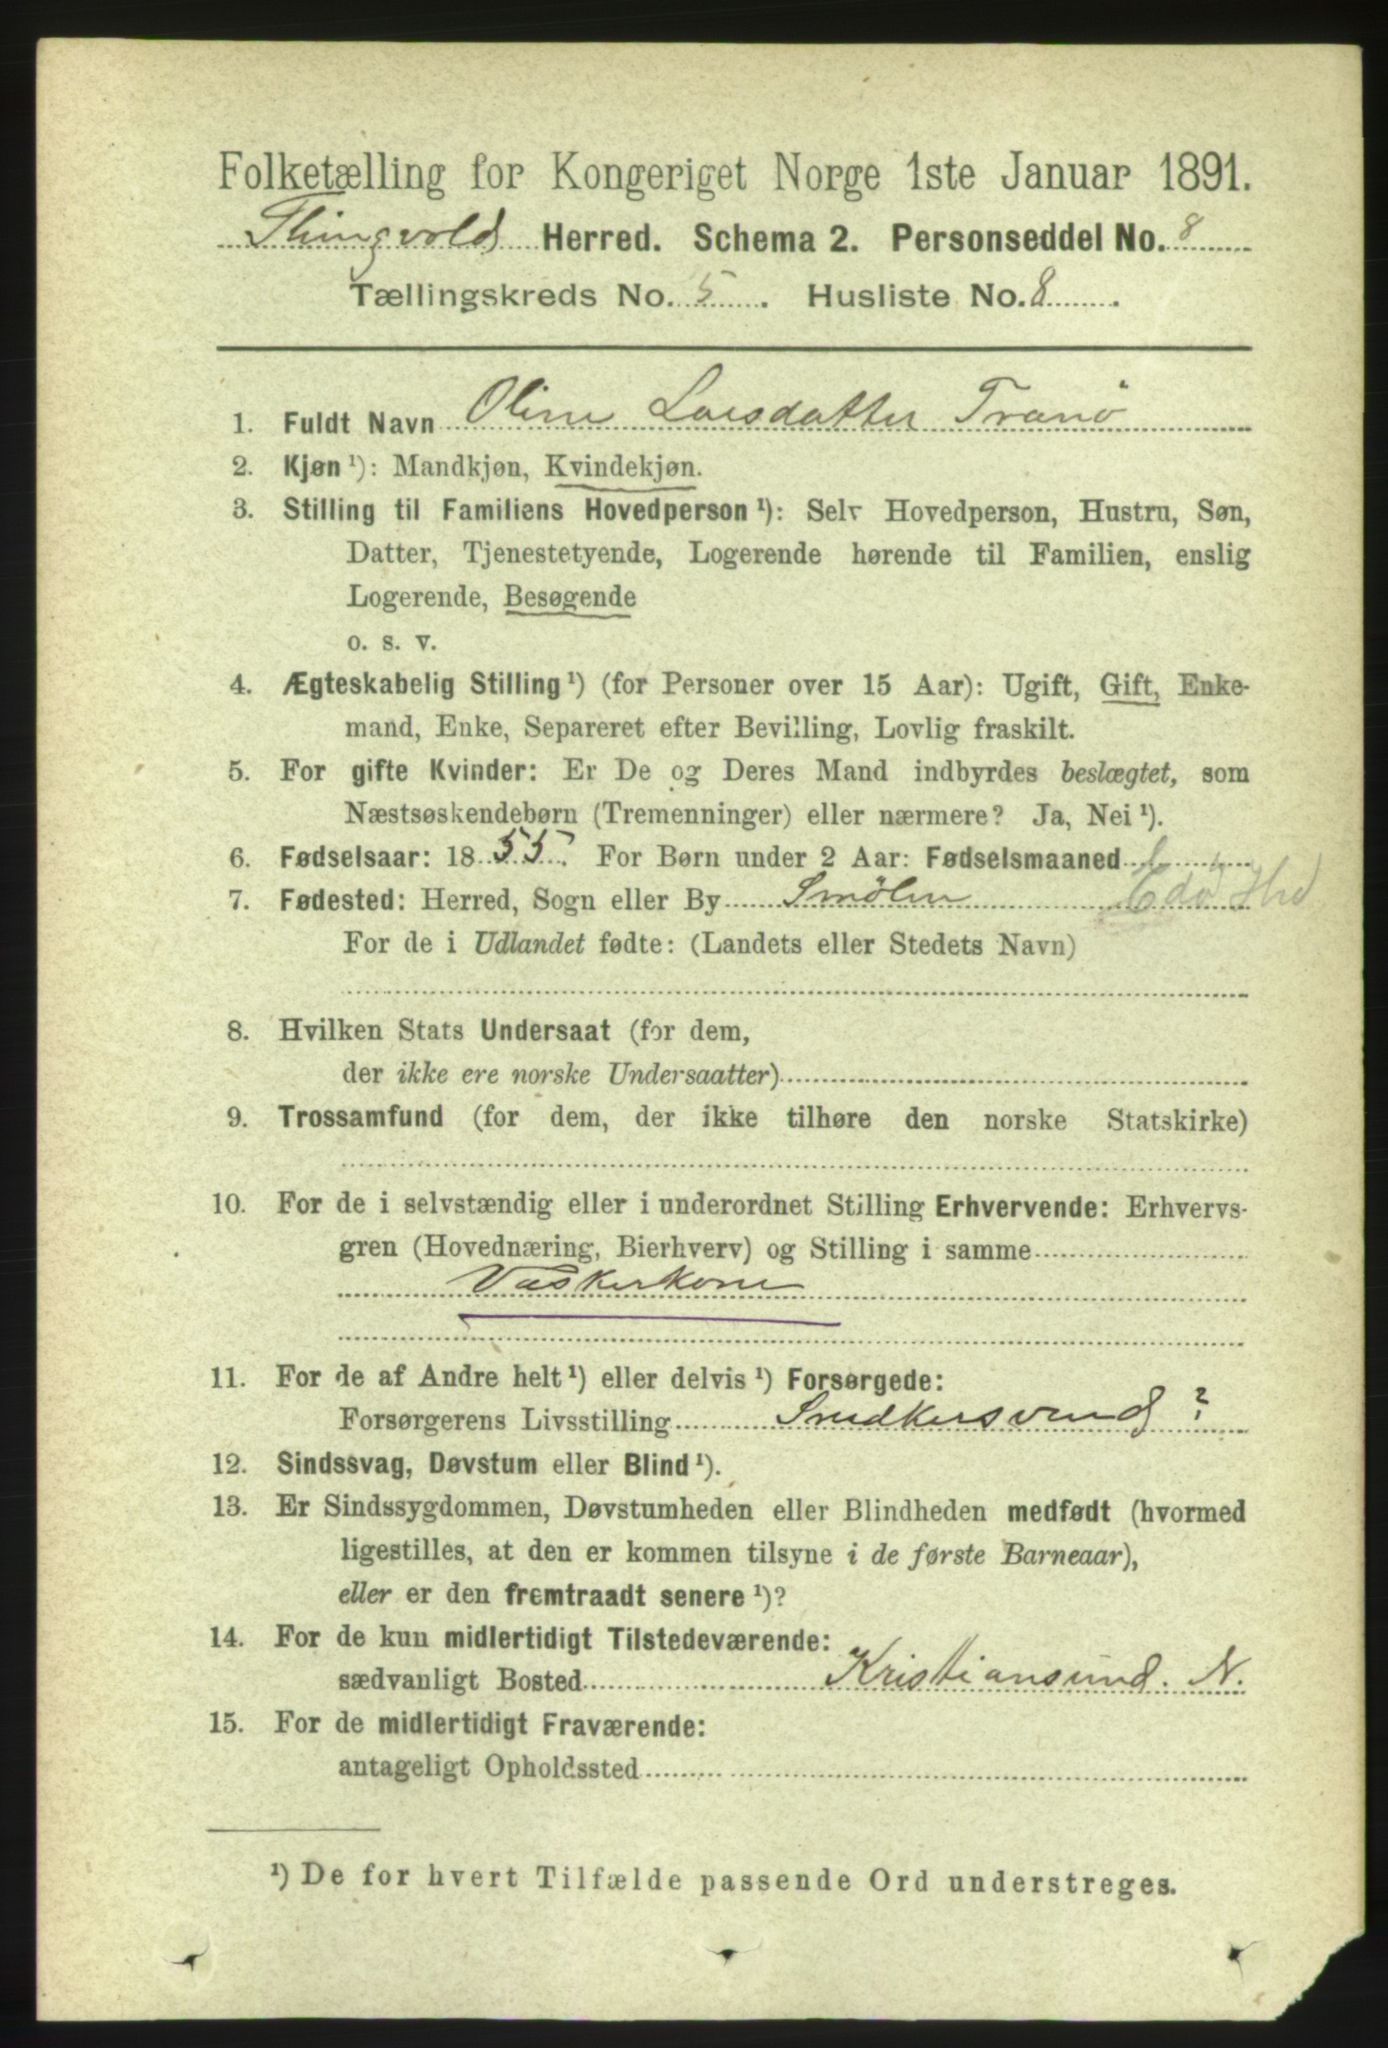 Folketælling for Kongeriget Norge 1ste Januar 1891.
Thingvold Herred. Schema 2. Personseddel No. 8
Tællingskreds No. 5. Husliste No. 8.
1. Fuldt Navn Oline Larsdatter Tranö
2. Kjøn ¹): Mandkjøn, Kvindekjøn.
3. Stilling til Familiens Hovedperson ¹): Selv Hovedperson, Hustru, Søn,
Datter, Tjenestetyende, Logerende hørende til Familien, enslig
Logerende, Besøgende
o. s. v.
4. Ægteskabelig Stilling ¹) (for Personer over 15 Aar): Ugift, Gift, Enke-
mand, Enke, Separeret efter Bevilling, Lovlig fraskilt.
5. For gifte Kvinder: Er De og Deres Mand indbyrdes beslægtet, som
Næstsøskendebørn (Tremenninger) eller nærmere? Ja, Nei ¹).
6. Fødselsaar: 1855. For Børn under 2 Aar: Fødselsmaaned
7. Fødested: Herred, Sogn eller By Smölen Edö Hrd
For de i Udlandet fødte: (Landets eller Stedets Navn)
8. Hvilken Stats Undersaat (for dem,
der ikke ere norske Undersaatter)
9. Trossamfund (for dem, der ikke tilhøre den norske Statskirke)
10. For de i selvstændig eller i underordnet Stilling Erhvervende: Erhvervs-
gren (Hovednæring, Bierhverv) og Stilling i samme
Vaskerkone
11. For de af Andre helt ¹) eller delvis ¹) Forsørgede:
Forsørgerens Livsstilling Snedkersvend ?
12. Sindssvag, Døvstum eller Blind ¹).
13. Er Sindssygdommen, Døvstumheden eller Blindheden medfødt (hvormed
ligestilles, at den er kommen tilsyne i de første Barneaar),
eller er den fremtraadt senere ¹)?
14. For de kun midlertidigt Tilstedeværende:
sædvanligt Bosted Kristiansund. N.
15. For de midlertidigt Fraværende:
antageligt Opholdssted
¹) De for hvert Tilfælde passende Ord understreges.